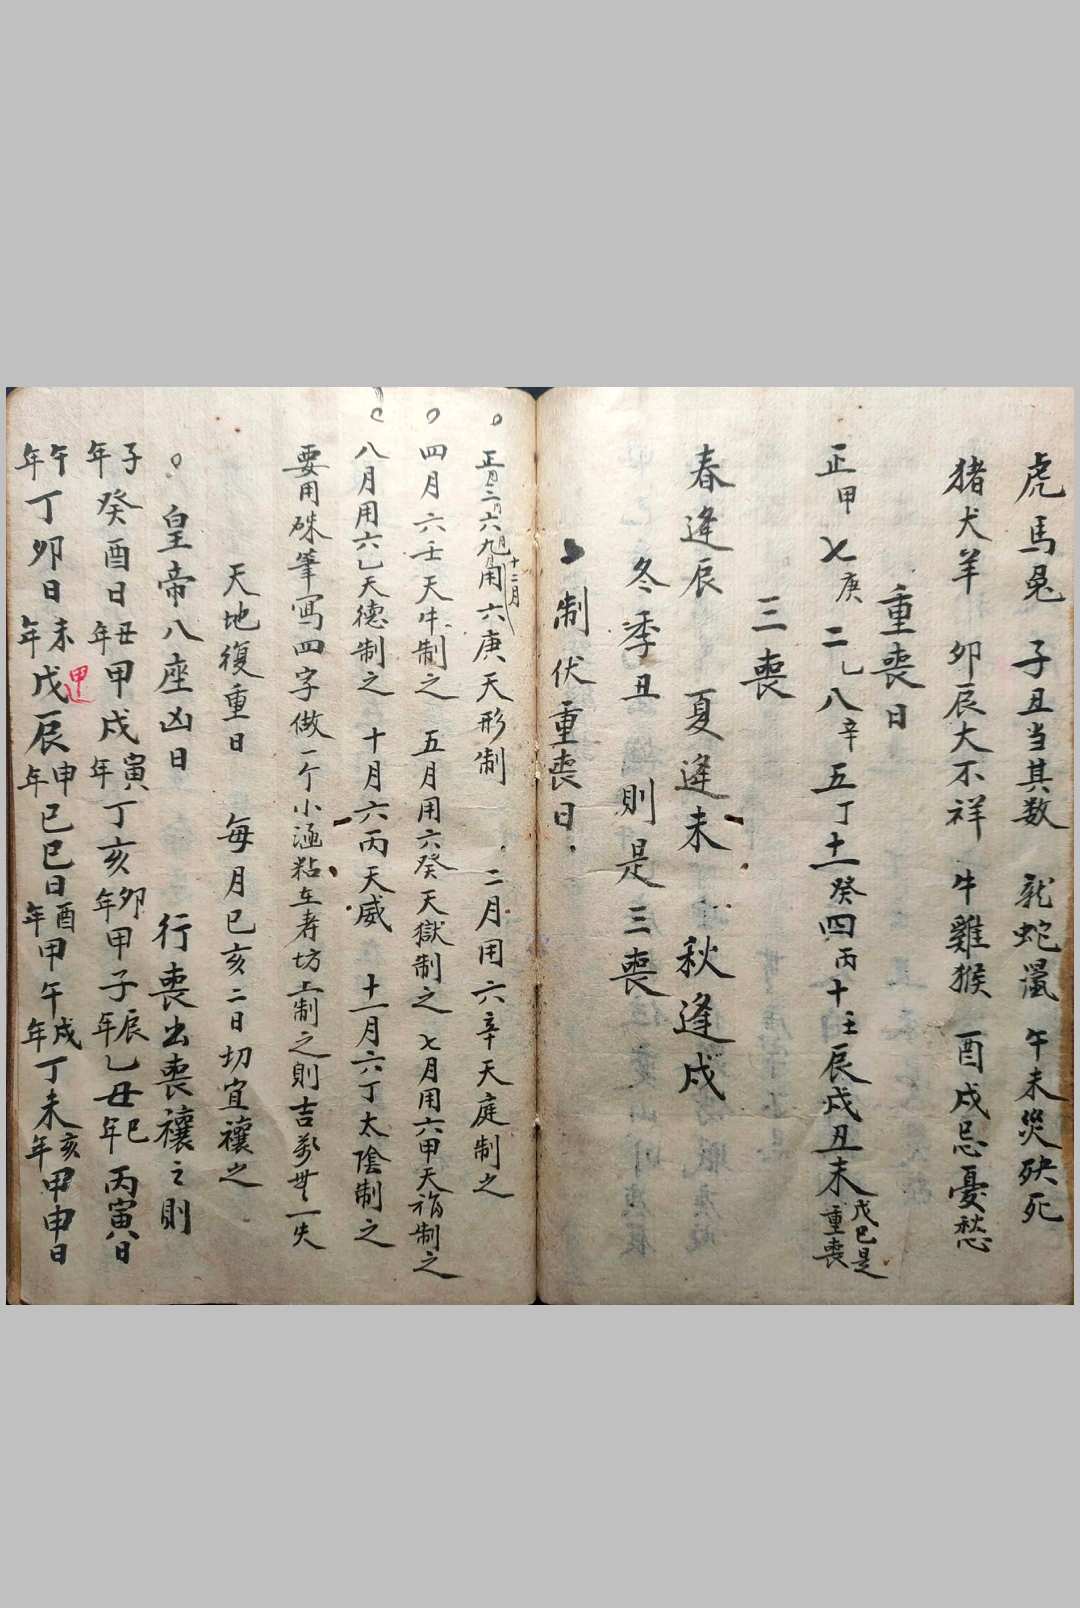 虎馬兎　子丑当其数　龍蛇鼠　午未災殃死
猪犬羊　卯辰大不祥　牛雞猴　酉戌忌憂愁
重喪日
正甲七庚二乙八辛五丁十一癸四丙十壬辰戌丑未戊巳是重喪
三喪
春逢辰　夏逢未　秋逢戌
冬季丑　則是三喪
制伏重喪日
正月三月六月九月十二月用六庚天形制　二月用六辛天庭制之
四月六壬天牛制之　五月用六癸天獄制之　七月用六甲天福制之
八月用六乙天德制之　十月六丙天威　十一月六丁太陰制之
要用硃筆写四字做一个小涵粘在寿坊上制之則吉萬無一失
天地復重日　每月巳亥二日切宜禳之
皇帝八座凶日　行喪出喪禳之則
子年癸酉日丑年甲戌寅年丁亥卯年甲子辰年乙丑巳年丙寅八日
午年丁卯日未年戊辰甲辶申年己巳日酉年甲午戌年丁未亥年甲申日